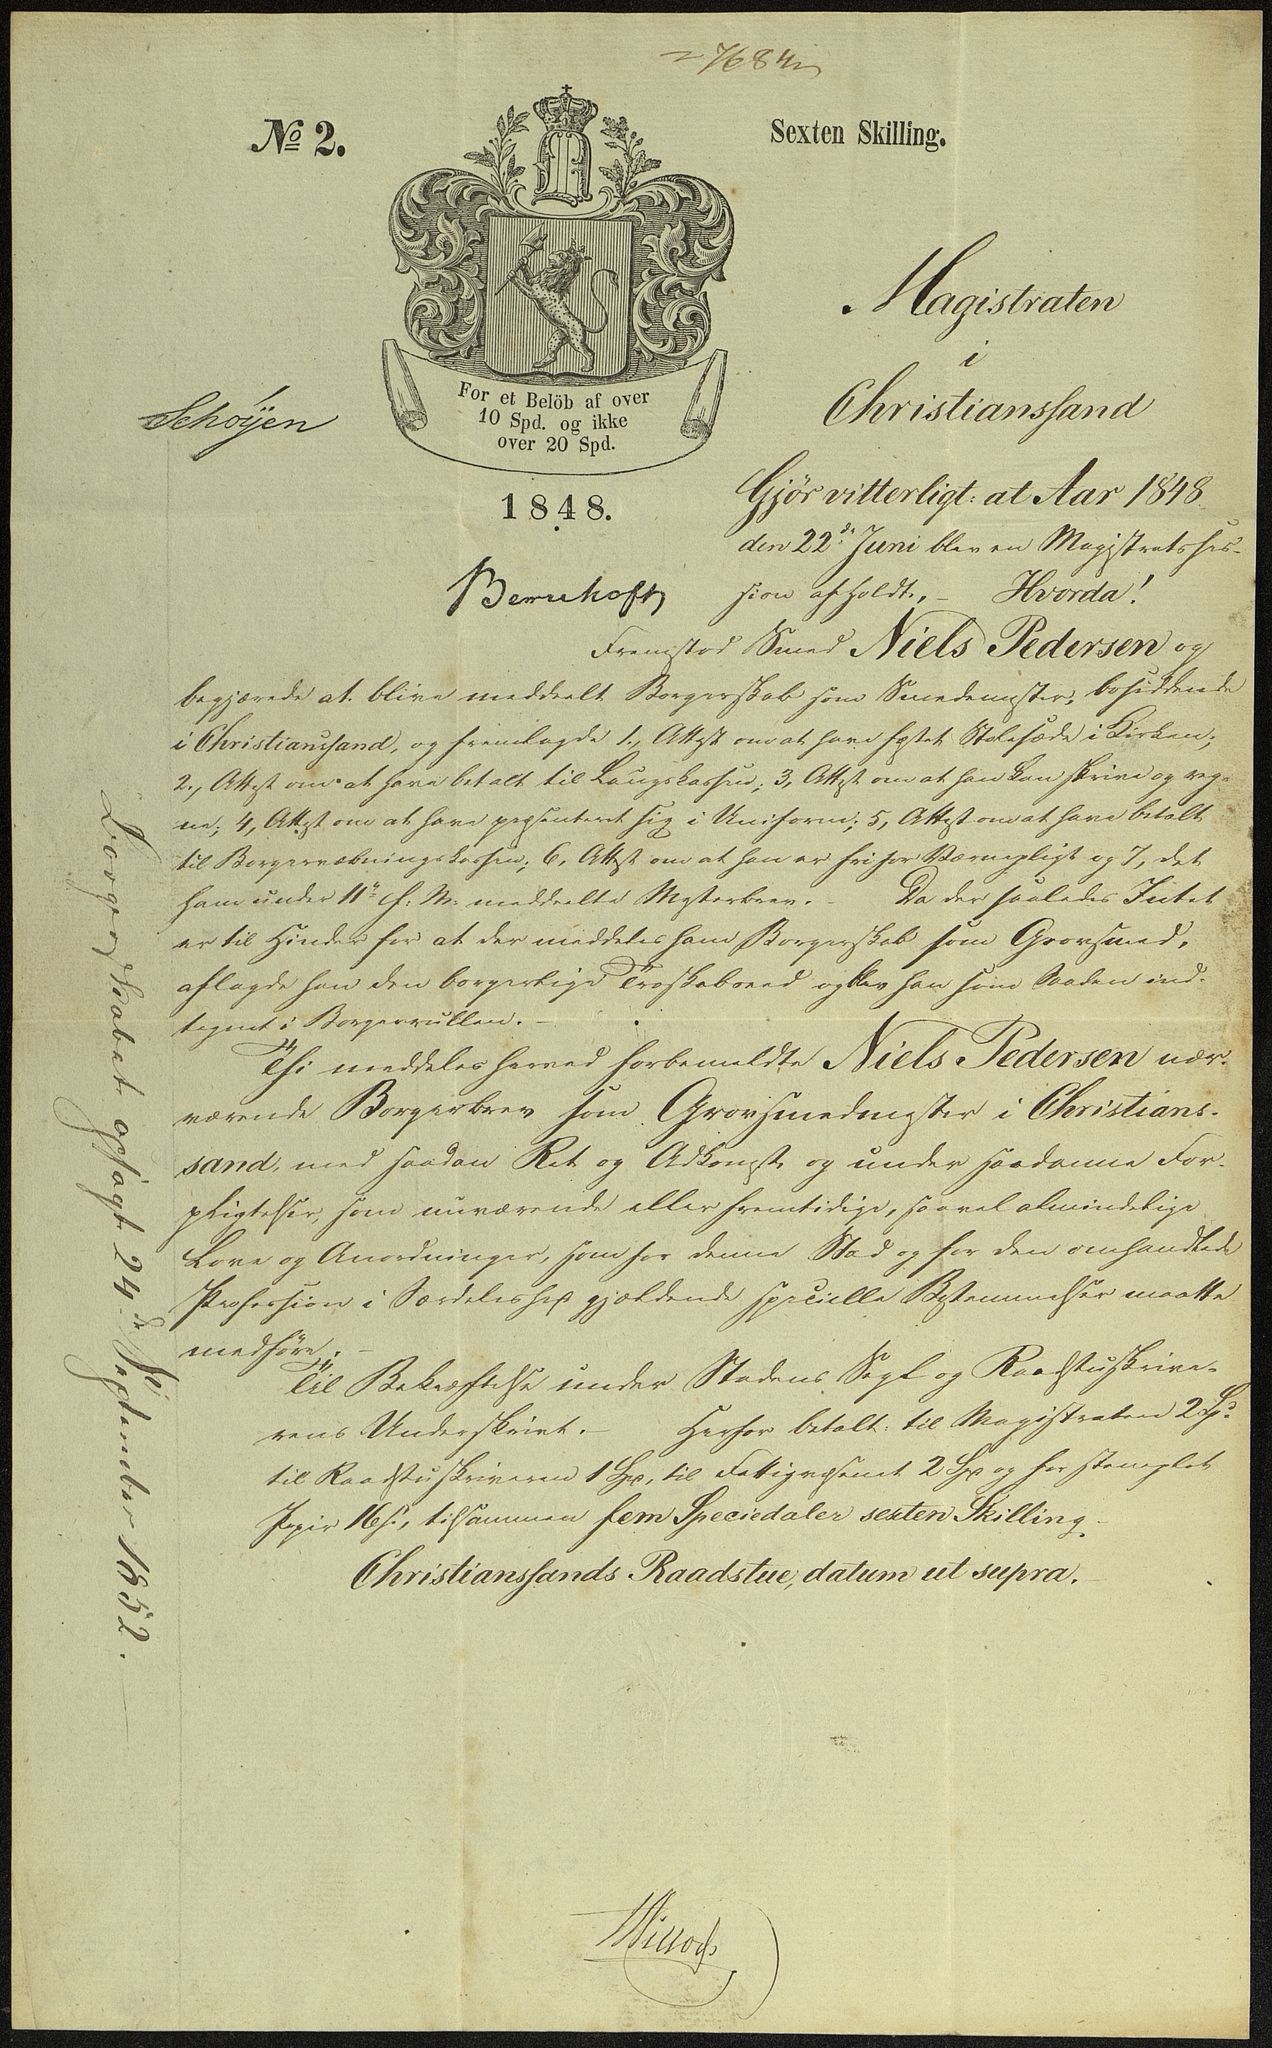 7684
No 2.
Sexten Skilling.
For et Belöb af over
10 Spd. og ikke
over 20 Spd.
1848.
Schöyen
Bernhoft
Magistraten
i
Christianssand
Gjør vitterligt: at Aar 1848
den 22de Juni blev en Magistratsses-
sion afholdt, – Hvorda!
Fremstod Smed Niels Pedersen og
begjærede at blive meddeelt Borgerskab som Smedemester, bosiddende
i Christianssand, og fremlagde 1., Attest om at have fæstet Stolesæde i Kirken;
2., Attest om at have betalt til Laugskassen; 3, Attest om at han kan skrive og reg-
ne; 4, Attest om at have præsenteret sig i Uniform; 5, Attest om at have betalt
til Borgervæbningskassen; 6, Attest om at han er fri for Værnepligt og 7, det
ham under 11te h. M. meddeelte Mesterbrev. – Da der saaledes Intet
er til Hinder for at der meddeles ham Borgerskab som Grovsmed,
aflagde han den borgerlige Troskabseed og blev han som Saadan ind-
tegnet i Borgerrullen. –
Thi meddeles herved forbemeldte Niels Pedersen nær-
værende Borgerbrev som Grovsmedmester i Christians-
sand, med saadan Ret og Adkomst og under saadanne For-
pligtelser, som nuværende eller fremtidige, saavel almindelige
Love og Anordninger, som for denne Stad og for den omhandlede
Profession i Særdeleshed gjældende specielle Bestemmelser maatte
medføre. –
Til Bekræftelse under Stadens Segl og Raadstuskrive-
rens Underskrivt. – Herfor betalt: til Magistraten 2 Spd.
til Raadstuskriveren 1 Spd, til Fattigvæsenet 2 Spd og for stemplet
Papir 16 s, tilsammen fem Speciedaler sexten Skilling.
Christianssands Raadstue, datum ut supra. –
Borgerskabet opsagt 24de September 1852.